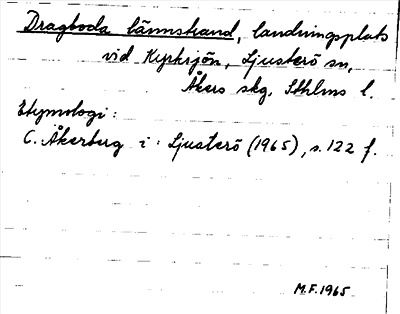 Dragboda lännstrand, landningsplats
vid Kyrksjön, Ljusterö sn,
Åkers skg, Sthlms l.
Etymologi:
C. Åkerberg i: Ljusterö (1965), s. 122 f.
M.F. 1965